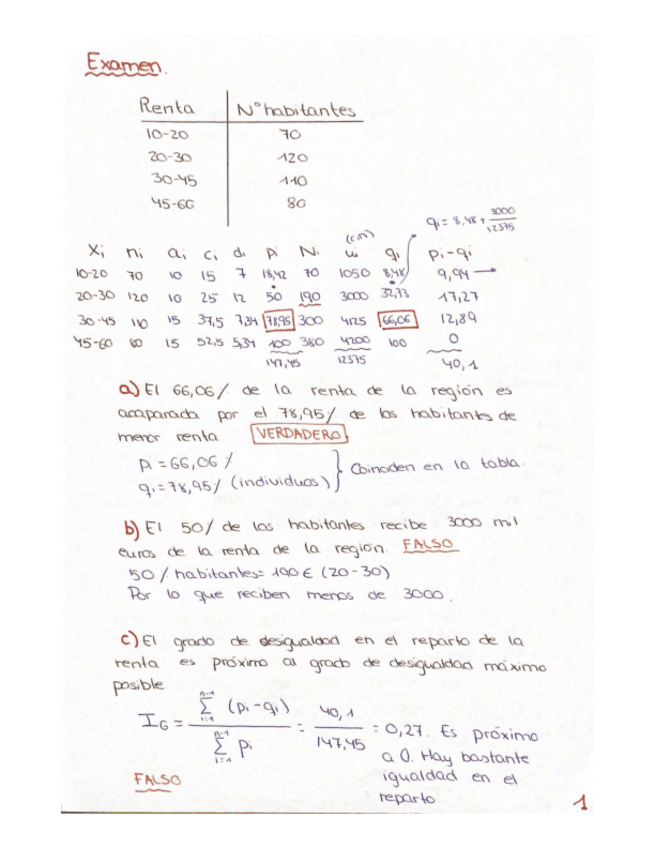 Examen.
Renta Nº habitantes
10-20 70
20-30 120
30-45 110
45-60 80
qi = 8,48 + 3000/12375
(ci·ni)
Xi ni ai ci di pi Ni ui qi pi-qi
10-20 70 10 15 7 18,42 70 1050 8,48 9,94 →
20-30 120 10 25 12 50 190 3000 32,73 17,27
30-45 110 15 37,5 7,34 78,95 300 4125 66,06 12,89
45-60 80 15 52,5 5,34 100 380 4200 100 0
147,45 12375 40,1
a) El 66,06/ de la renta de la región es
acaparada por el 78,95/ de los habitantes de
menor renta. VERDADERO
pi = 66,06 /
qi = 78,95/ (individuos) } Coinciden en la tabla.
b) El 50/ de los habitantes recibe 3000 mil
euros de la renta de la región. FALSO
50 / habitantes = 190 € (20-30)
Por lo que reciben menos de 3000.
c) El grado de desigualdad en el reparto de la
renta es próximo al grado de desigualdad máximo
posible
IG = n-1 Σ i=1 (pi - qi) / n-1 Σ i=1 pi = 40,1 / 147,45 = 0,27. Es próximo
a 0. Hay bastante
igualdad en el
reparto.
FALSO
1